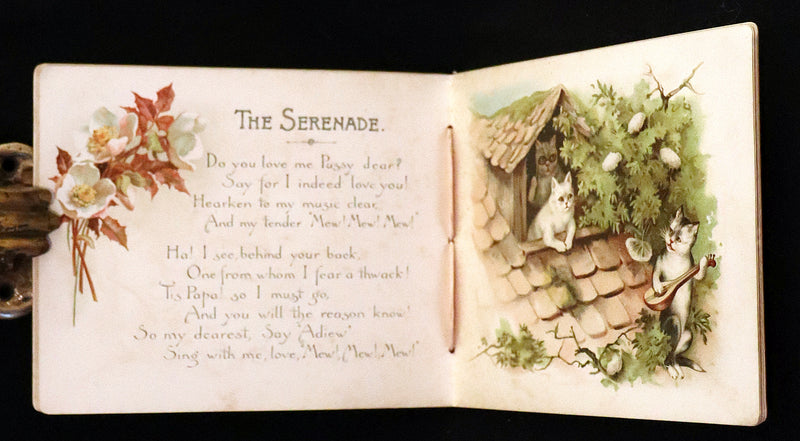 THE SERENADE.
Do you love me Pussy dear?
Say for I indeed love you!
Hearken to my music clear,
And my tender "Mew! Mew! Mew!"
Ha! I see, behind your back,
One from whom I fear a thwack!
'Tis Papa! so I must go,
And you will the reason know!
So my dearest, Say "Adiew"
Sing with me, love, "Mew!, Mew!, Mew!"